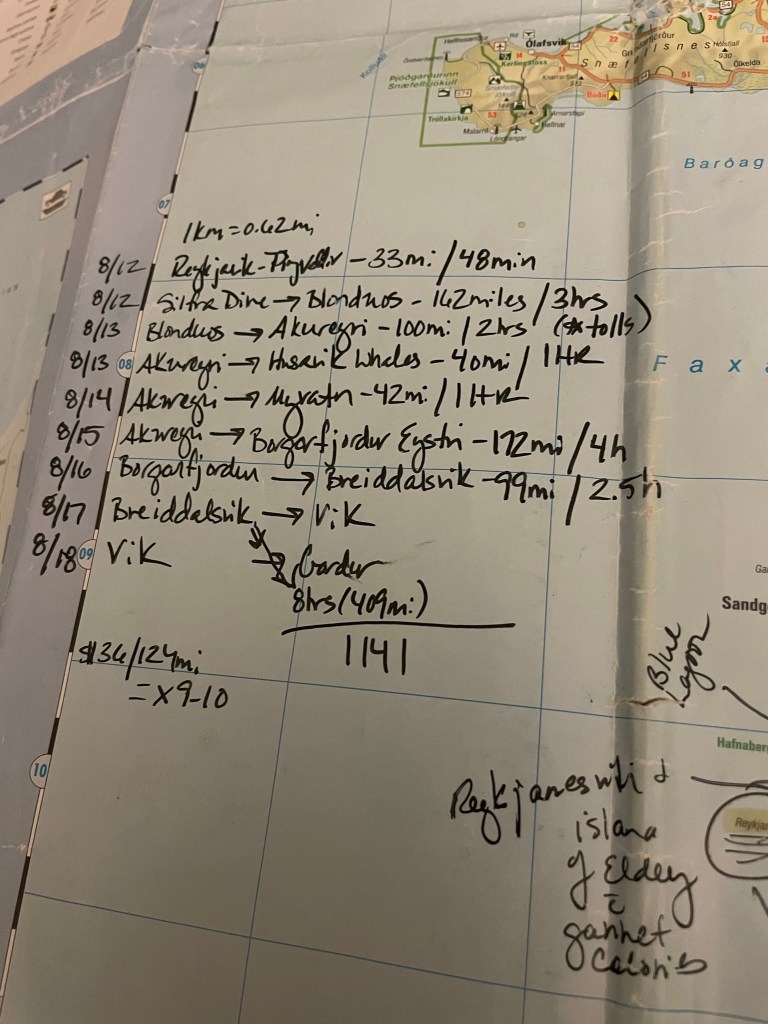 Ólafsvík
Snæfellsnes
Þjóðgarðurinn
Snæfellsjökull
Kerlingafoss
Hólsfjall
930
Ölkelda
22
54
51
53
574
Búðir
Tröllakirkja
Malarrif
Lóndrangar
Arnarstapi
Hellnar
Barðag
07
1km = 0.62mi
8/12 Reykjavik - - 33mi / 48min
8/12 Silfra Dive → Blonduos - 142miles / 3hrs
8/13 Blonduos → Akureyri - 100mi / 2hrs (* tolls)
8/13 08 Akureyri → Husavik Whales - 40mi / 1HR
Faxa
8/14 Akureyri → Myvatn - 42mi / 1HR
8/15 Akureyri → Borgarfjordur Eystri - 172mi / 4h
8/16 Borgarfjordur → Breiddalsvik - 99mi / 2.5h
8/17 Breiddalsvik → Vik
8/18 09 Vik → Gardur
8hrs (409mi)
1141
$36/124mi
= x 9-10
Sandg
Blue
Lagoon
10
Hafnaber
Reykjan
Reykjanes
island
of Eldey
c̄
gannet